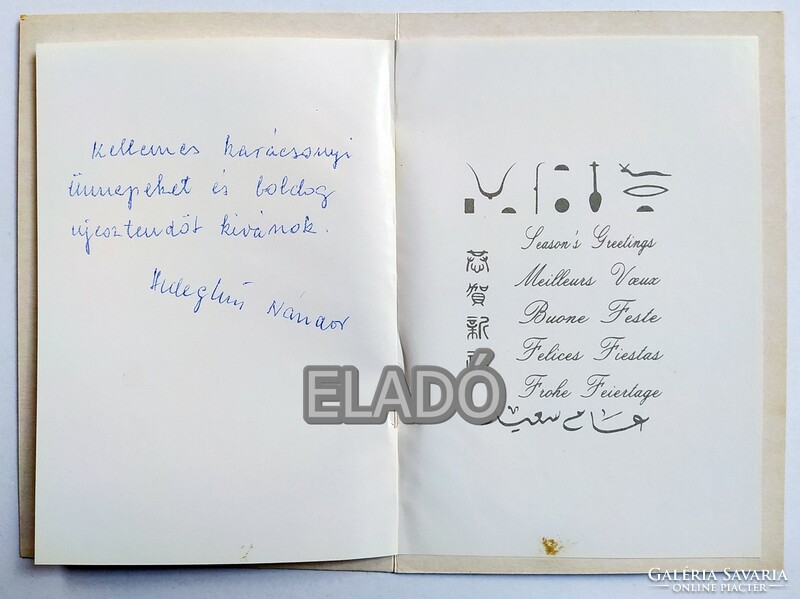 Kellemes karácsonyi
ünnepeket és boldog
újesztendőt kivánok.
Nándor
Season's Greetings
Meilleurs Vœux
Buone Feste
Felices Fiestas
Frohe Feiertage
عام سعيد
恭
賀
新
ELADÓ
GALÉRIA SAVARIA
ONLINE PIACTÉR